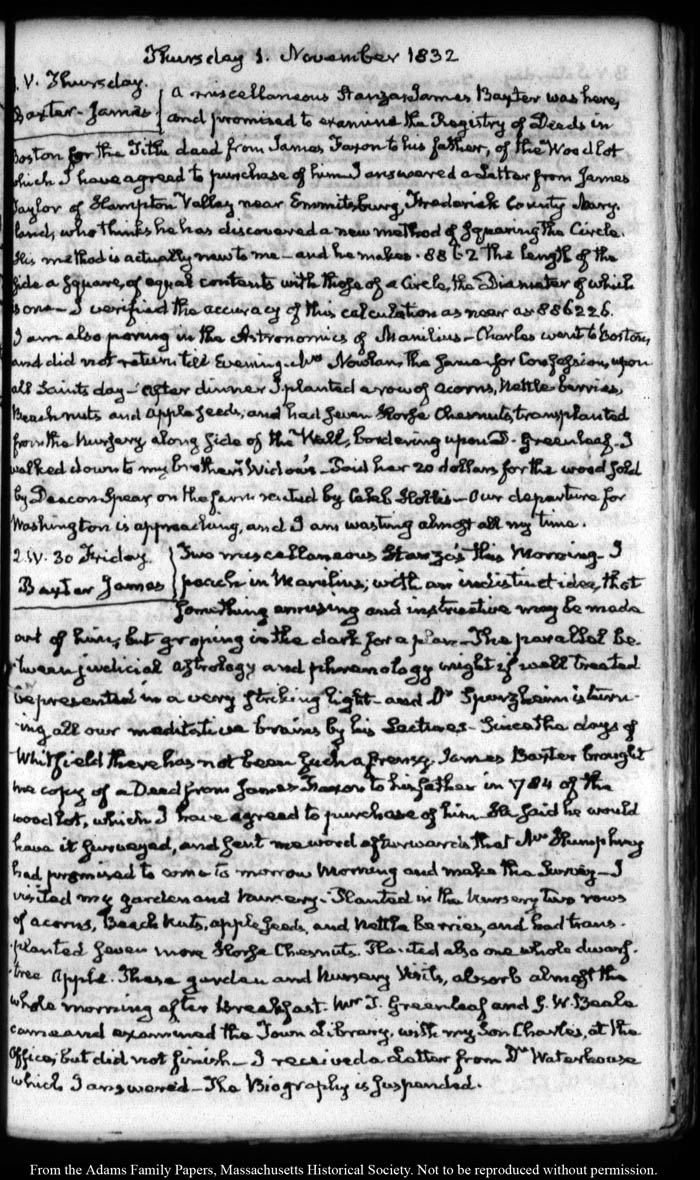 Thursday 1. November 1832
V. Thursday.
Baxter-James
A miscellaneous Stanza. James Baxter was here,
and promised to examine the Registry of Deeds in
Boston for the Title deed from James Faxon to his father, of the Wood lot
which I have agreed to purchase of him. I answered a Letter from James
Taylor of Hampton Valley near Emmitsburg, Frederick County Mary-
land, who thinks he has discovered a new method of squaring the Circle.
His method is actually new to me - and he makes .8862 the length of the
side a square, of equal contents with those of a Circle, the Diameter of which
is one - I verified the accuracy of this calculation as near as 886226.
I am also poring in the Astronomics of Manilius - Charles went to Boston,
and did not return till Evening. Mrs Nowlan, the same for Confession, upon
all Saints day - After dinner I planted a row of acorns, Nettle-berries,
Beachnuts and apple seeds; and had seven Horse Chesnuts, transplanted
from the Nursery along side of the Wall, bordering upon D. Greenleaf - I
walked down to my brother's Widow's - Paid her 20 dollars for the wood sold
by Deacon Spear on the farm rented by Caleb Hollis - Our departure for
Washington is approaching, and I am wasting almost all my time.
2. IV. 30 Friday.
Baxter James
Two miscellaneous Stanzas this Morning - I
in Manilius; with an indistinct idea, that
something amusing and instructive may be made
out of him; but groping in the dark for a plan - The parallel be-
tween judicial astrology and phrenology might if well treated
be presented in a very striking light - and Dr Spurzheim is turn-
ing all our meditative brains by his Lectures - Since the days of
Whitfield there has not been such a frenzy. James Baxter brought
me copy of a Deed from James Faxon to his father in 1784 of the
wood lot, which I have agreed to purchase of him. He said he would
have it surveyed, and sent me word afterwards that Mr Humphrey
had promised to come to morrow Morning and make the Survey - I
visited my garden and nursery. Planted in the Nursery two rows
of acorns, Beach nuts, apple seeds, and Nettle berries, and had trans-
planted seven more Horse Chesnuts. Planted also one whole dwarf-
tree Apple. These garden and Nursery visits, absorb almost the
whole morning after breakfast. Mr T. Greenleaf and G. W. Beale
came and examined the Town Library, with my Son Charles, at the
Office, but did not finish - I received a Letter from Dr Waterhouse
which I answered - The Biography is suspended.
From the Adams Family Papers, Massachusetts Historical Society. Not to be reproduced without permission.